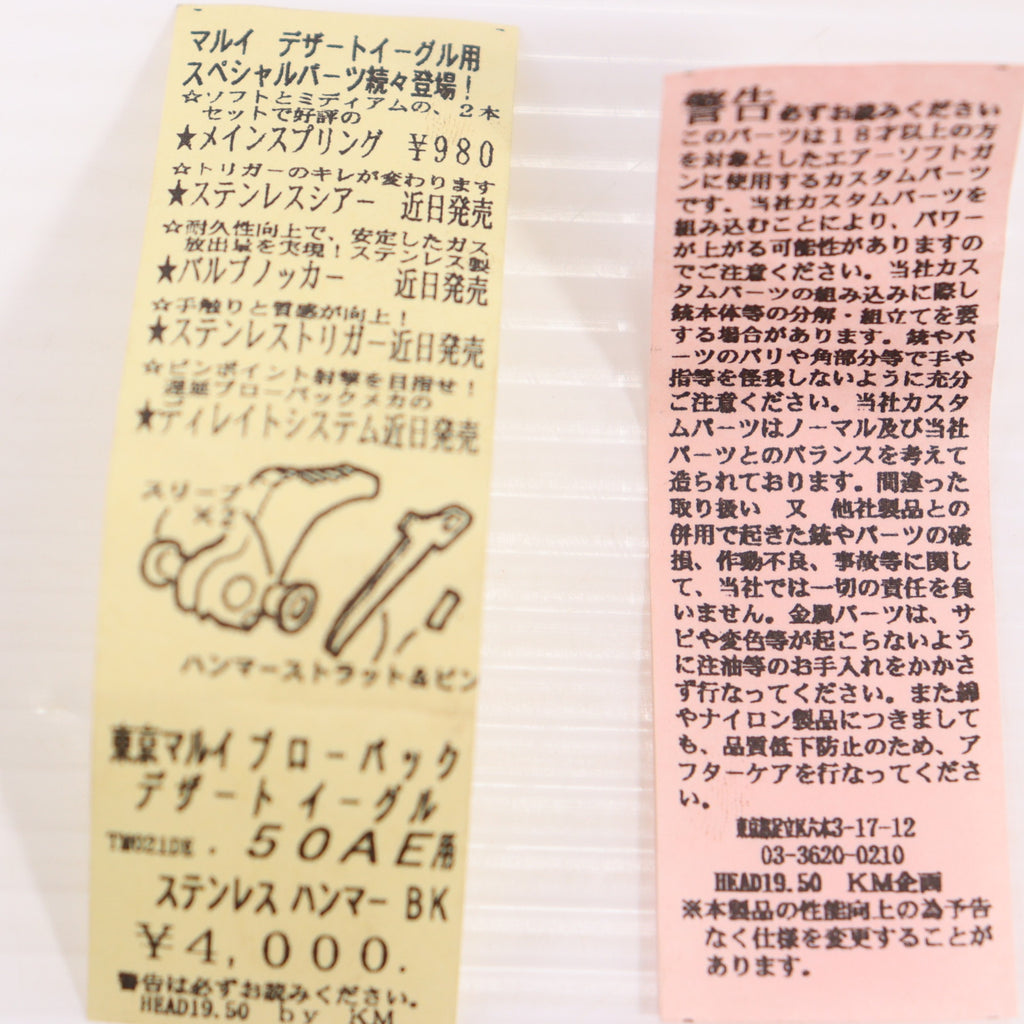 マルイ デザートイーグル用
スペシャルパーツ続々登場！
☆ソフトとミディアムの、2本
セットで好評の
★メインスプリング ￥980
☆トリガーのキレが変わります
★ステンレスシアー 近日発売
☆耐久性向上で、安定したガス
放出量を実現！ステンレス製
★バルブノッカー 近日発売
☆手触りと質感が向上！
★ステンレストリガー近日発売
☆ピンポイント射撃を目指せ！
遅延ブローバックメカの
★ディレイトシステム近日発売
スリーブ
×2
ハンマーストラット&ピン
東京マルイ ブローバック
デザートイーグル
TM021DE . 50AE用
ステンレス ハンマー BK
￥4,000.
警告は必ずお読みください。
HEAD19.50 by KM
警告必ずお読みください
このパーツは18才以上の方
を対象としたエアーソフトガ
ンに使用するカスタムパーツ
です。当社カスタムパーツを
組み込むことにより、パワー
が上がる可能性がありますの
でご注意ください。当社カス
タムパーツの組み込みに際し
銃本体等の分解・組立てを要
する場合があります。銃やパ
ーツのバリや角部分等で手や
指等を怪我しないように充分
ご注意ください。当社カスタ
ムパーツはノーマル及び当社
パーツとのバランスを考えて
造られております。間違った
取り扱い 又 他社製品との
併用で起きた銃やパーツの破
損、作動不良、事故等に関し
て、当社では一切の責任を負
いません。金属パーツは、サ
ビや変色等が起こらないよう
に注油等のお手入れをかかさ
ず行なってください。また綿
やナイロン製品につきまして
も、品質低下防止のため、ア
フターケアを行なってくださ
い。
東京都足立区六木3-17-12
03-3620-0210
HEAD19.50 KM企画
※本製品の性能向上の為予告
なく仕様を変更することが
あります。